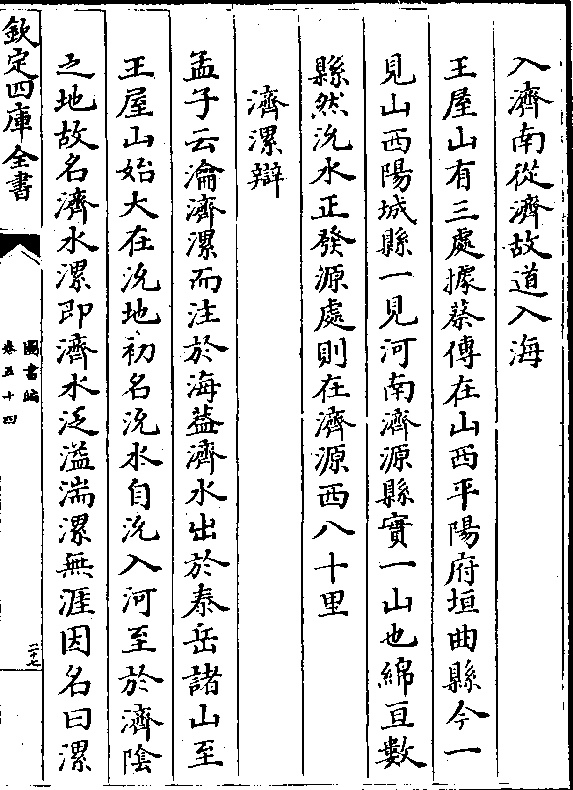 入濟南從濟故道入海
王屋山有三處據蔡傳在山西平陽府垣曲縣今一
見山西陽城縣一見河南濟源縣實一山也綿亘數
縣然沇水正發源處則在濟源西八十里
濟漯辯
孟子云淪濟漯而注於海蓋濟水出於泰岳諸山至
王屋山始大在沇地初名沇水自沇入河至於濟陰
之地故名濟水漯即濟水泛溢湍漯無涯因名曰漯
欽定四庫全書
圖書編
卷五十四